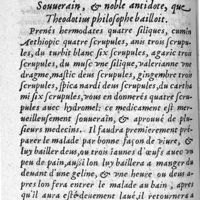 Souuerain, & noble antidote, que
Theodatius philosophe bailloit.
Prenés hermodates quatre siliques, cumin
Aethiopic quatre scrupules, anis trois scrupu-
les, du turbit blanc six scrupules, agaric trois
scrupules, du musc vne silique, valerianne vne
dragme, mastic deus scrupules, gingembre trois
scrupules, spica nardi deus scrupules, du cartha
mi six scrupules, vous en donnerés quatre scru-
pules auec hydromel: ce medicament est mer-
ueilleusement souuerain, & aprouué de plu-
sieurs medecins. Il faudra premierement pre-
parer le malade par bonne façon de viure, &
luy bailler deus, ou trois iaunes d'œufs auec vn
peu de pain, aussi lon luy baillera a manger du
deuant d'vne geline, & vne heure ou deus a-
pres lon fera entrer le malade au bain, apres
qu'il aura esté deuement laué, il retournera a